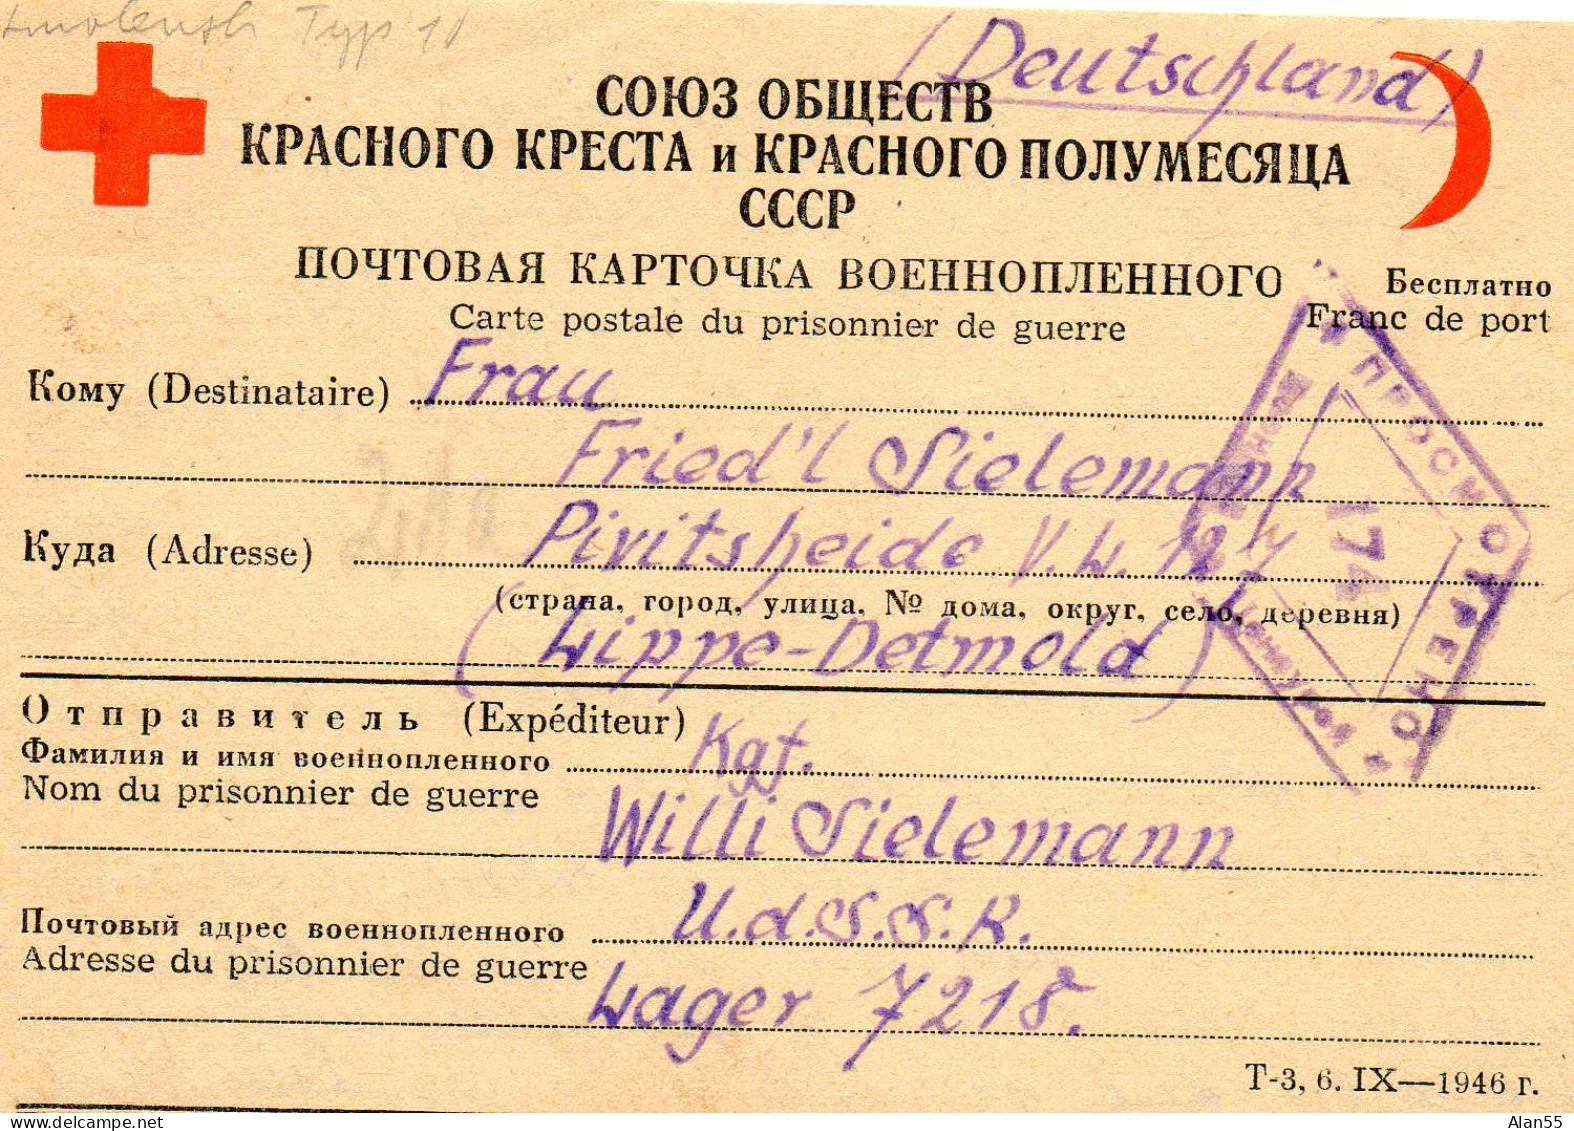 Smolensk Typ 10
(Deutschland)
СОЮЗ ОБЩЕСТВ
КРАСНОГО КРЕСТА и КРАСНОГО ПОЛУМЕСЯЦА
СССР
ПОЧТОВАЯ КАРТОЧКА ВОЕННОПЛЕННОГО
Бесплатно
Carte postale du prisonnier de guerre
Franc de port
Кому (Destinataire) Frau
Fried'l Sielemann
Куда (Adresse) Pivitsheide V.L. 127
(страна, город, улица, № дома, округ, село, деревня)
(Lippe-Detmold)
Отправитель (Expéditeur)
Фамилия и имя военнопленного Kgf.
Nom du prisonnier de guerre
Willi Sielemann
Почтовый адрес военнопленного U.d.S.S.R.
Adresse du prisonnier de guerre
Lager 7218.
ПРОСМОТРЕНО
174
Т-3, 6. IX—1946 г.
Alan55